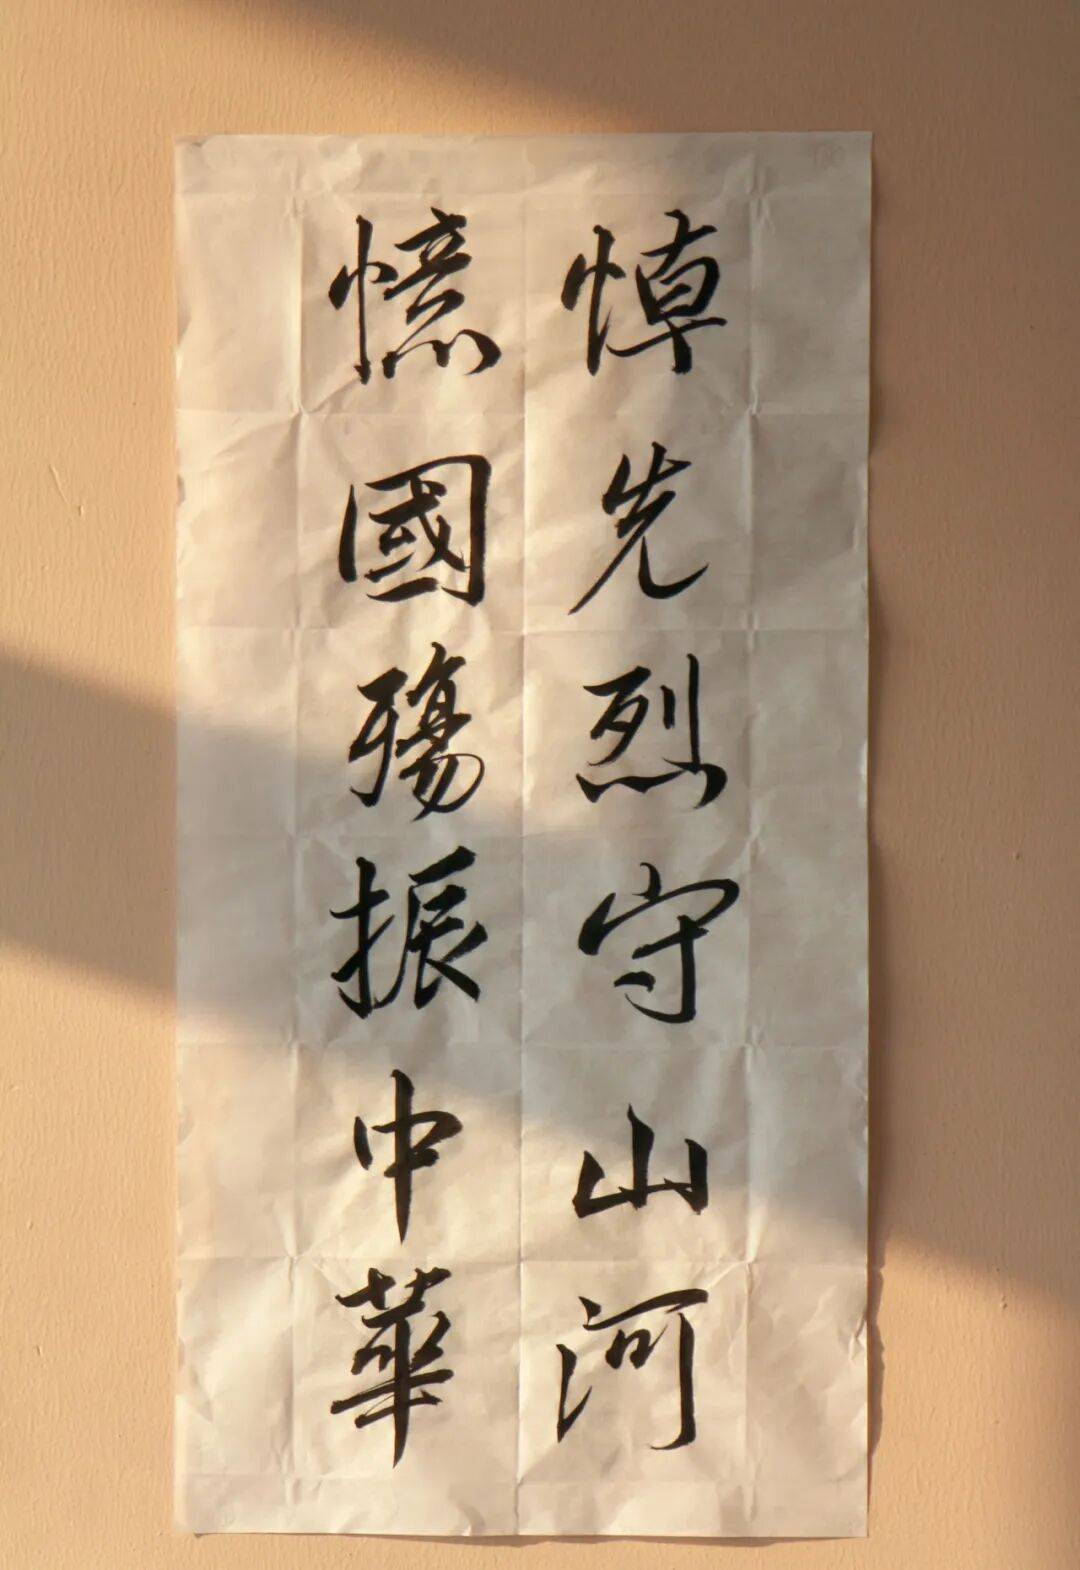 悼先烈守山河
憶國殤振中華